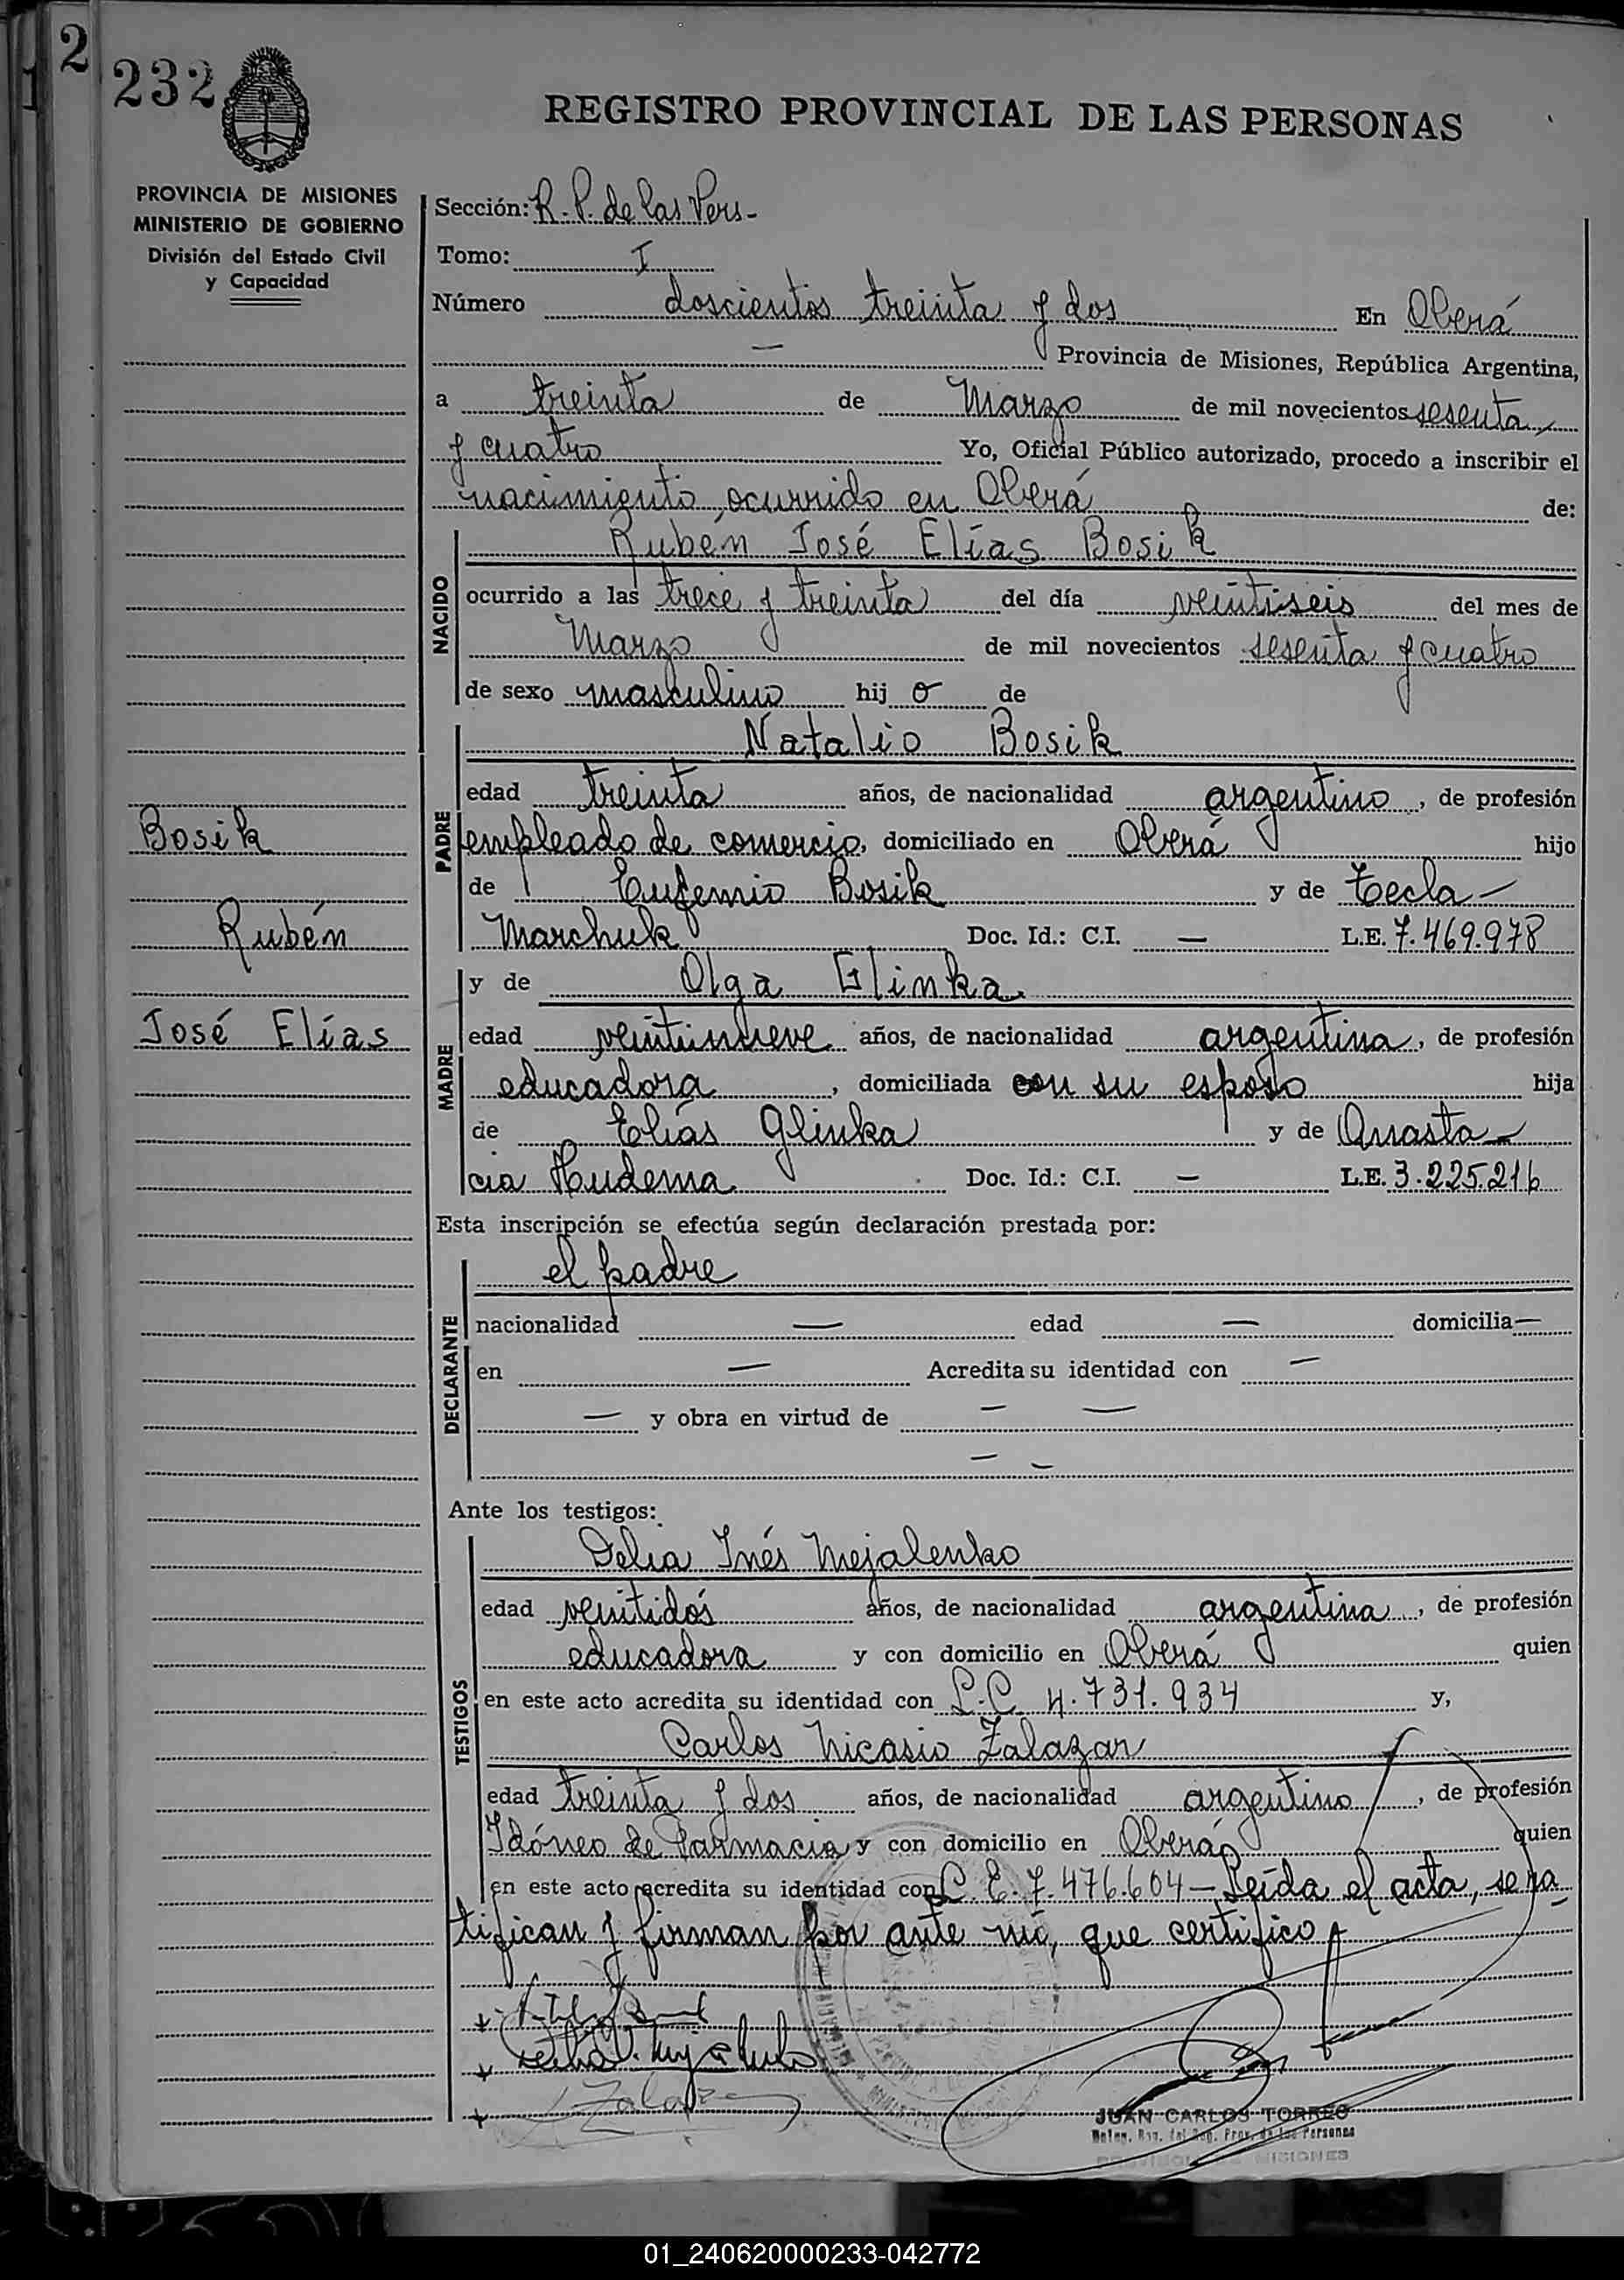 2
1
232
REGISTRO PROVINCIAL DE LAS PERSONAS
PROVINCIA DE MISIONES
MINISTERIO DE GOBIERNO
División del Estado Civil
y Capacidad
Bosik
Rubén
José Elías
Sección: R.P. de las Pers-
Tomo: I
Número doscientos treinta y dos En Oberá
— Provincia de Misiones, República Argentina,
a treinta de Marzo de mil novecientos sesenta
y cuatro Yo, Oficial Público autorizado, procedo a inscribir el
nacimiento ocurrido en Oberá de:
NACIDO
Rubén José Elías Bosik
ocurrido a las trece y treinta del día veintiseis del mes de
Marzo de mil novecientos sesenta y cuatro
de sexo masculino hijo de
PADRE
Natalio Bosik
edad treinta años, de nacionalidad argentino, de profesión
empleado de comercio, domiciliado en Oberá hijo
de Eufemio Bosik y de Tecla —
Marchuk Doc. Id.: C.I. — L.E. 7.469.978
MADRE
y de Olga Glinka
edad veintinueve años, de nacionalidad argentina, de profesión
educadora, domiciliada con su esposo hija
de Elías Glinka y de Anasta-
cia Hudema Doc. Id.: C.I. — L.E. 3.225.216
Esta inscripción se efectúa según declaración prestada por:
DECLARANTE
el padre
nacionalidad — edad — domicilia—
en — Acredita su identidad con —
— y obra en virtud de — —
— —
Ante los testigos:
TESTIGOS
Delia Inés Mejalenko
edad veintidós años, de nacionalidad argentina, de profesión
educadora y con domicilio en Oberá quien
en este acto acredita su identidad con L.C. 4.731.934 y,
Carlos Nicasio Zalazar
edad treinta y dos años, de nacionalidad argentino, de profesión
Idóneo de Farmacia y con domicilio en Oberá quien
en este acto acredita su identidad con L.E. 7.476.604 — Leída el acta, se ra-
tifican y firman por ante mí, que certifico
Zalazar
JUAN CARLOS TORRES
01_240620000233-042772